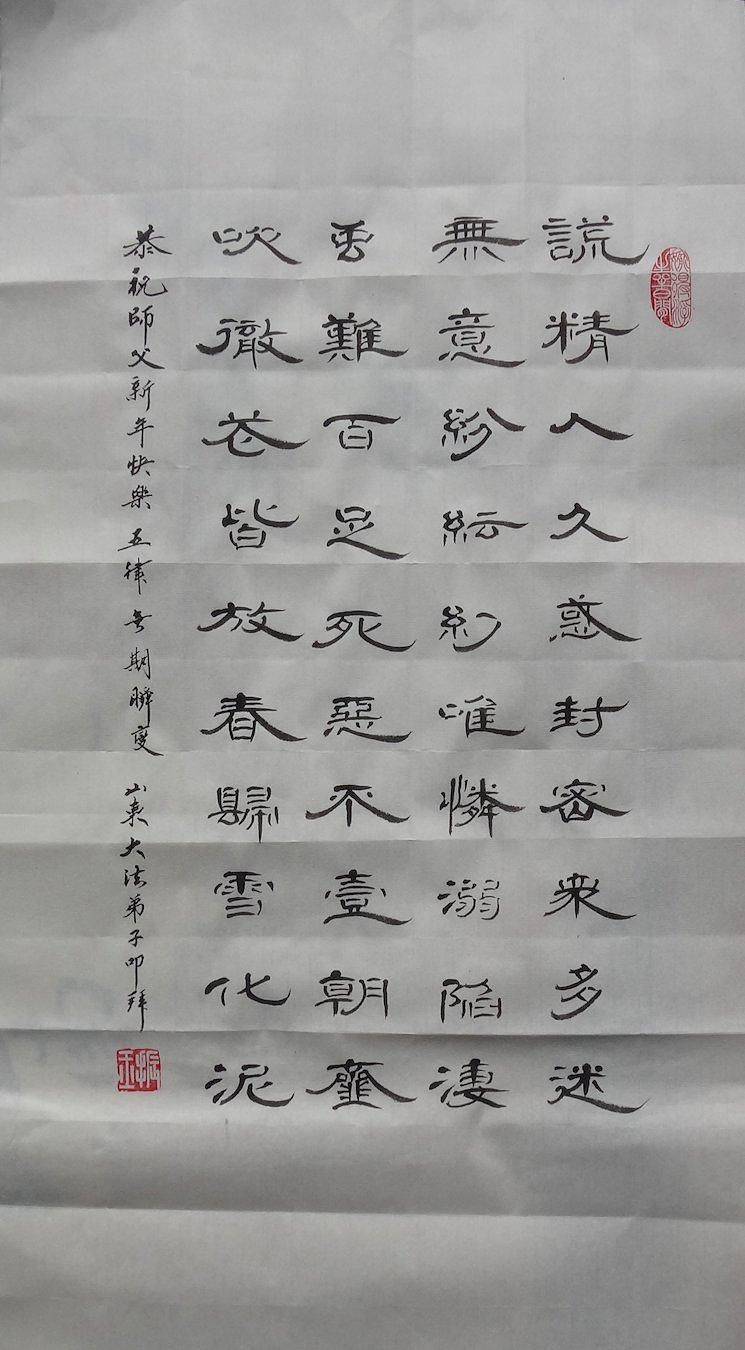 謊精人久惑封密眾多迷
無意紛紜幻唯憐溺陷淒
虫難百足死惡不壹朝齏
吹徹花皆放春歸雪化泥
恭祝師父新年快樂 五律 無期瞬變 山東大法弟子叩拜